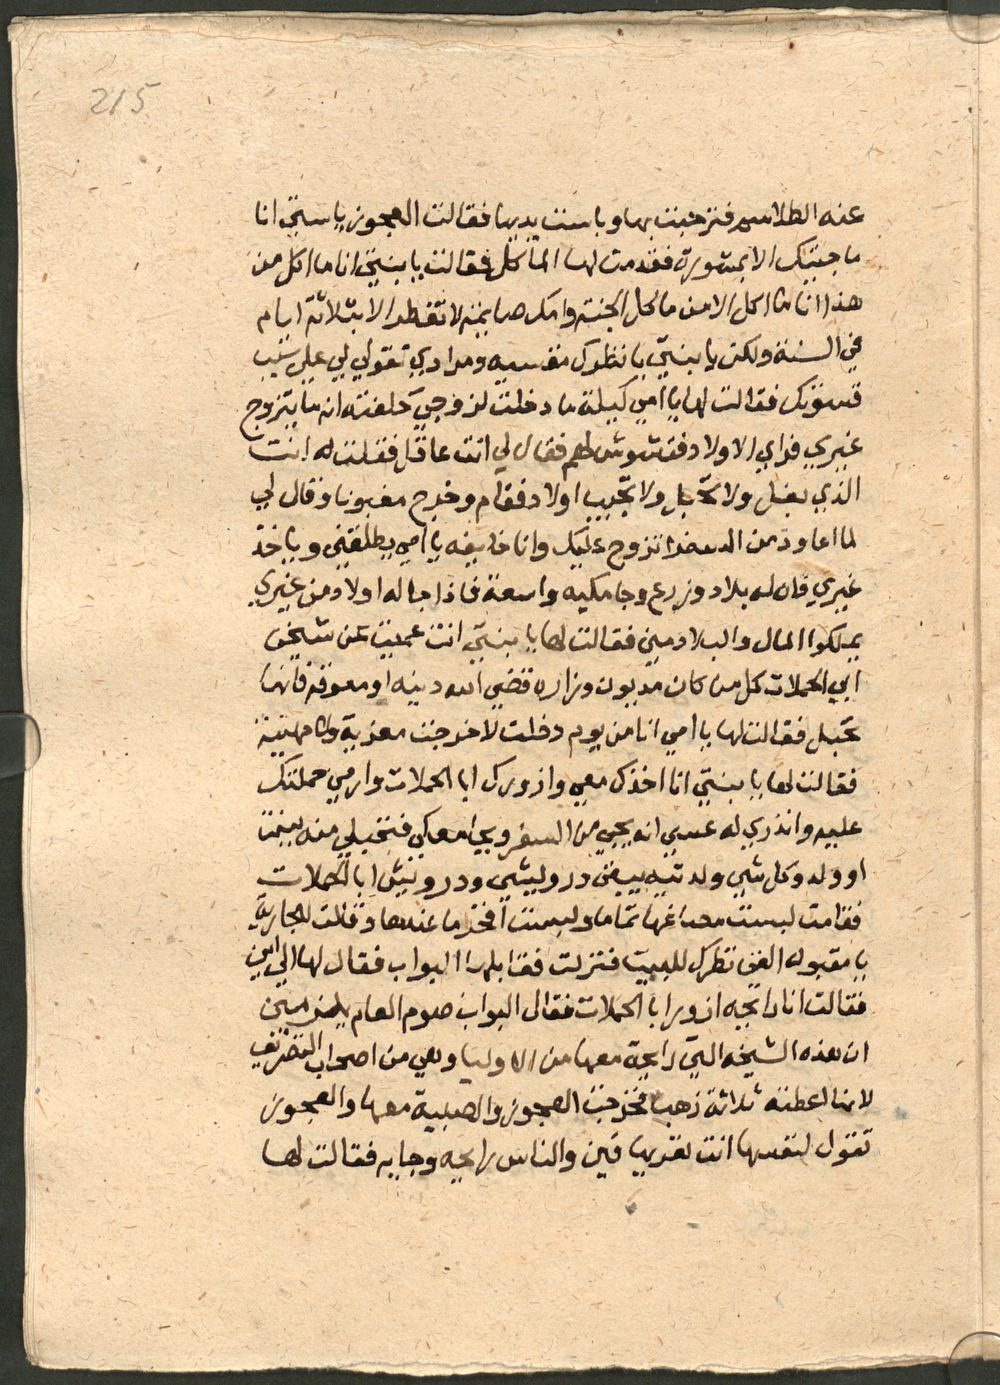 215
عنه الطلاسم فترحبت بها وباست يديها فقالت العجوز يا ستي انا
ما جيتك الا بمشورة فقدمت لها الماكل فقالت يا بنتي انا ما اكل من
هذا انا ما اكل الا من ماكل الجنة وامك صايمة لا تفطر الا بثلاثة ايام
في السنة ولكن يا بنتي بانظرك مقسيه ومرادي تقولي لي على سبب
قسوتك فقالت لها يا امي كيلة ما دخلت لزوجي حلفته انه ما يتزوج
غيري فراي الاولاد فقشوش لهم فقال لي انت عاقر فقلت له انت
الذي بغل ولا تحبل ولا تجيب اولاد فقام وخرج مغبونا وقال لي
لما اعاود من السفر اتزوج عليك وانا خايفه يا امي يطلقني وياخذ
غيري فان له بلاد وزرع وجامكيه واسعة فاذا جا له اولاد من غيري
يملكوا المال والبلاد مني فقالت لها يا بنتي انت عميت عن شيخي
ابي الحملات كل من كان مديون وزاره قضي الله دينه او معوقة فانها
تحبل فقالت لها يا امي انا من يوم دخلت لا خرجت معزية ولا مهنية
فقالت لها يا بنتي انا اخذك معي وازورك ابا الحملات وارمي حملتك
عليه وانذري له عسي انه يجي من السفر ويجامعك فتحبلي منه ببنت
او ولد وكل شي ولدتيه يبقى درويشي ودرويش ابا الحملات
فقامت لبست مصاغها تماما ولبست افخر ما عندها وقالت للجارية
يا مقبوله القي نظرك للبيت فنزلت فقابلها البواب فقال لها الى اين
فقالت انا رايحه ازور ابا الحملات فقال البواب صوم العام يلزمني
ان هذه الشيخه التي رايحة معها من الاوليا وهي من اصحاب التصريف
لانها اعطته ثلاثة ذهب فخرجت العجوز والصبية معها والعجوز
تقول لنفسها انت تعريها فين والناس رايحه وجايه فقالت لها